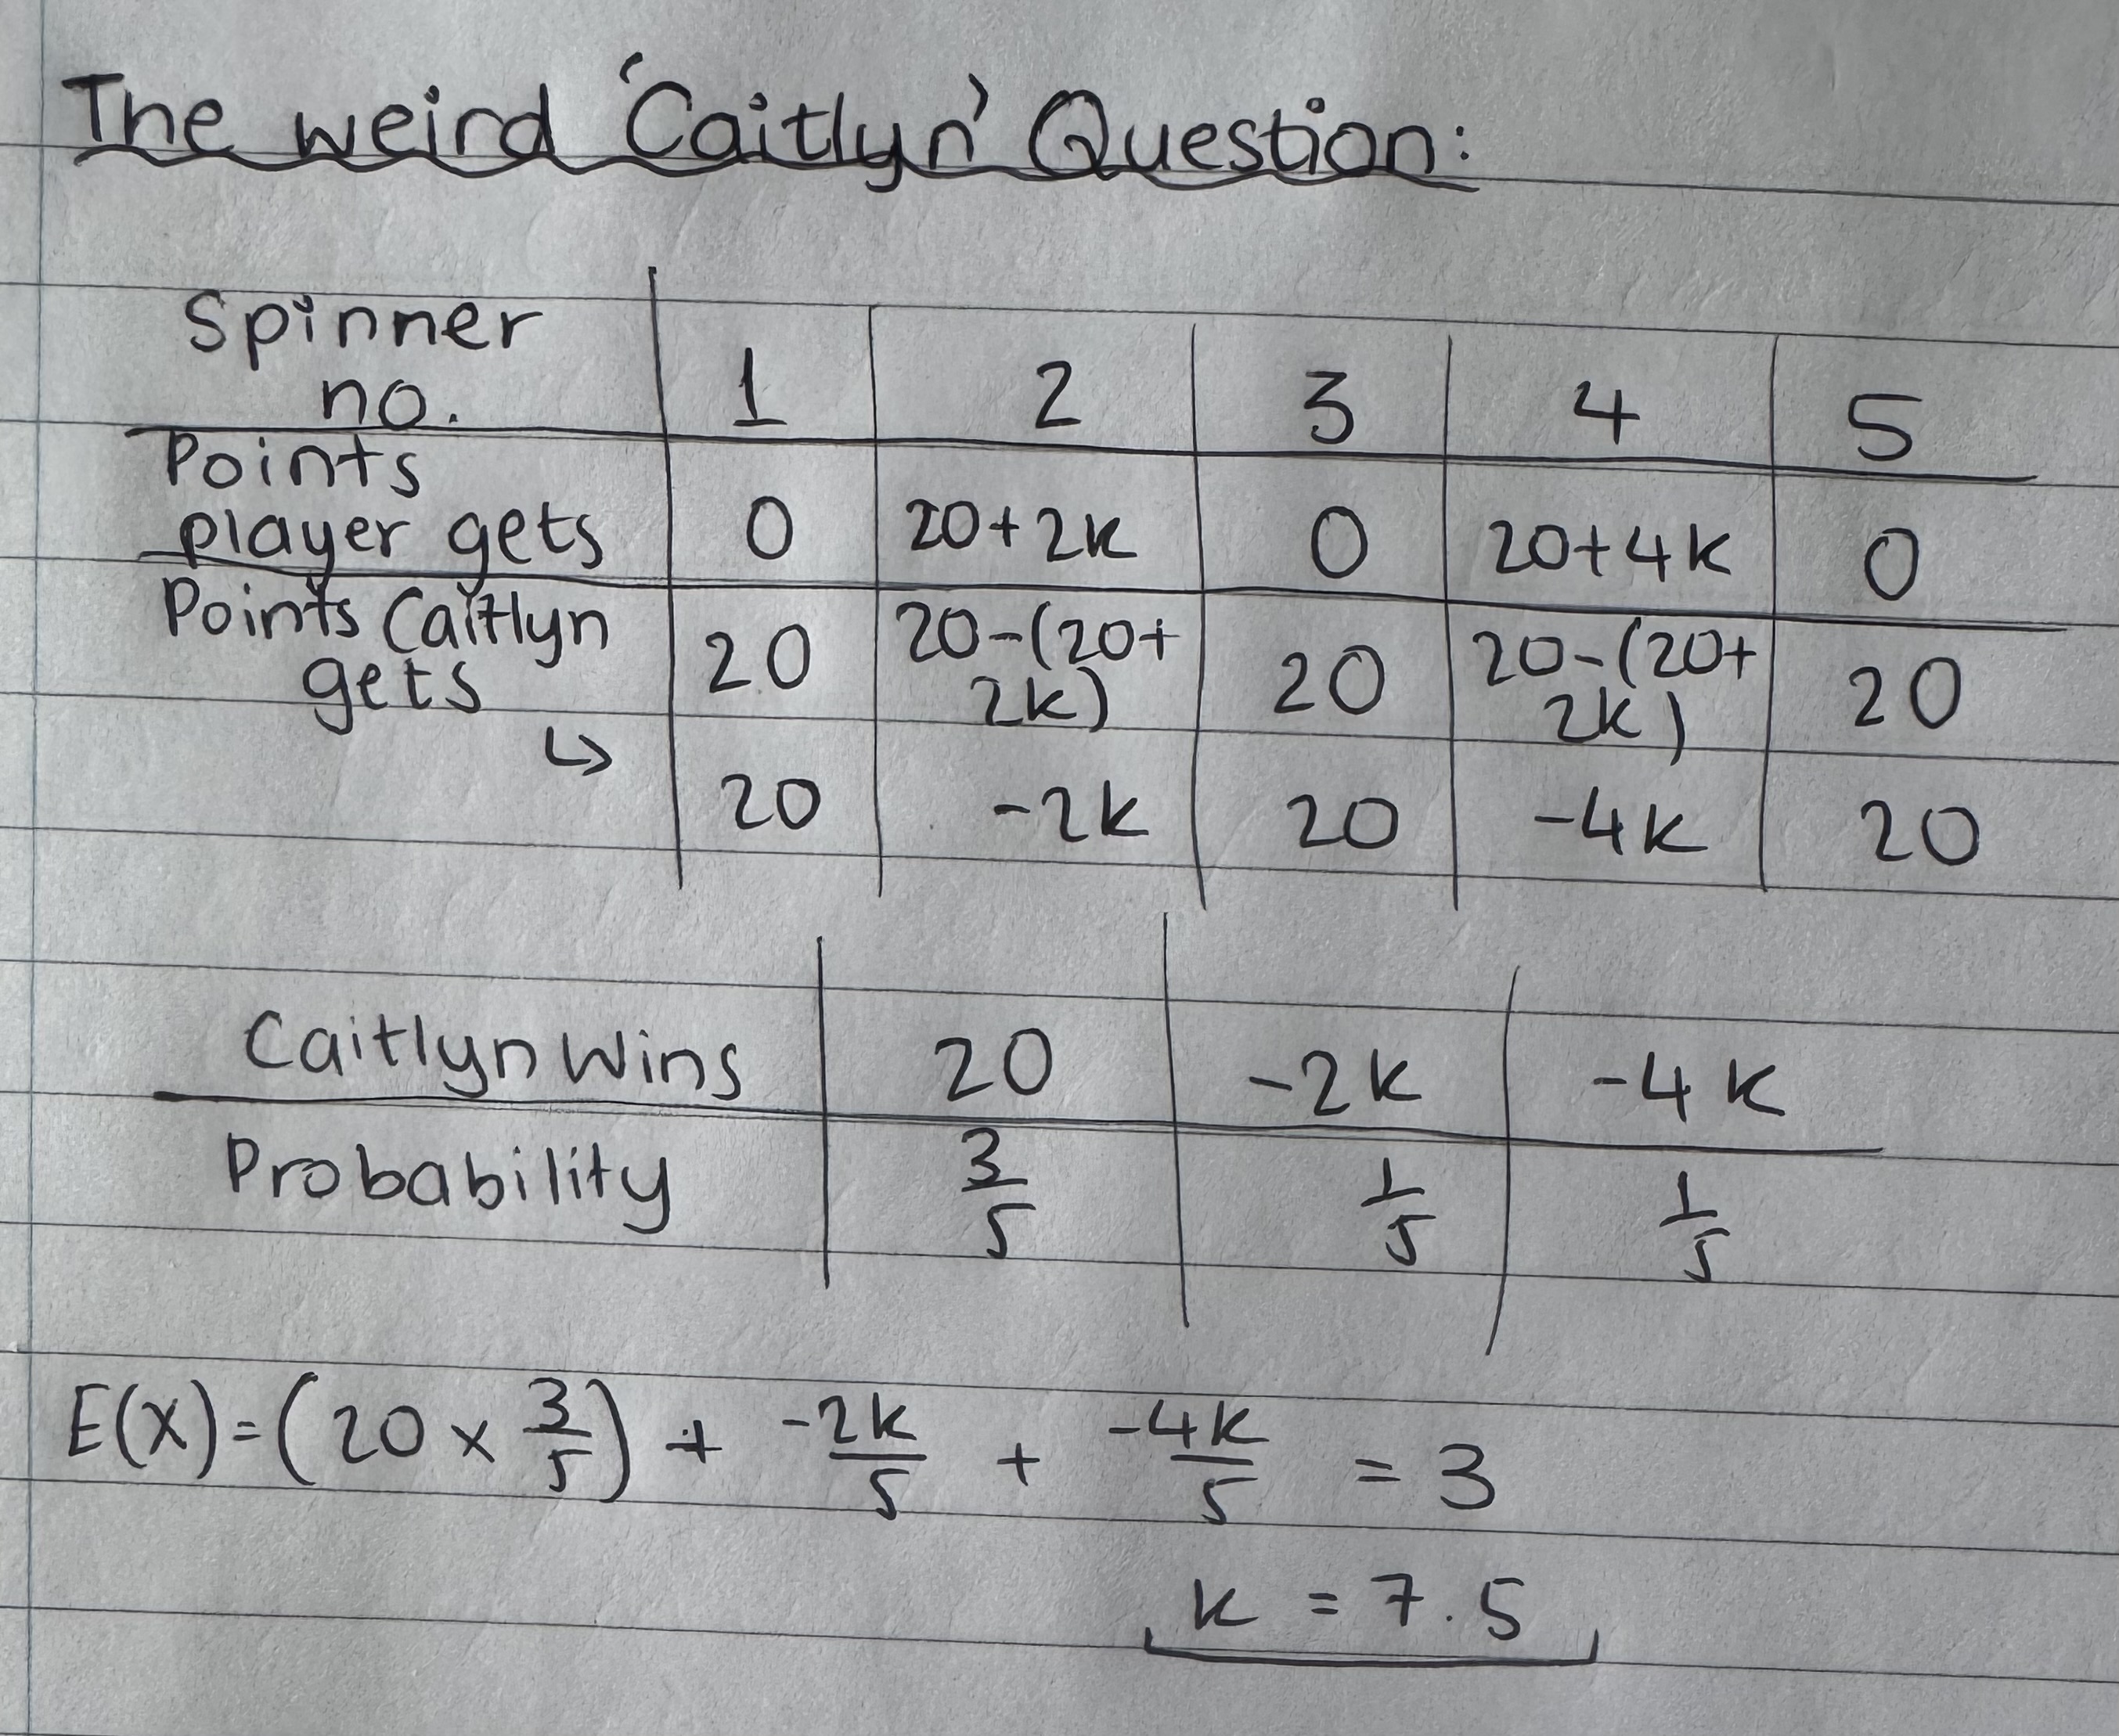 The weird 'Caitlyn' Question:
Spinner no. 1 2 3 4 5
Points player gets 0 20+2k 0 20+4k 0
Points Caitlyn gets 20 20-(20+2k) 20 20-(20+2k) 20
↳ 20 -2k 20 -4k 20
Caitlyn Wins 20 -2k -4k
Probability 3/5 1/5 1/5
E(X)=(20 × 3/5) + -2k/5 + -4k/5 = 3
k = 7.5